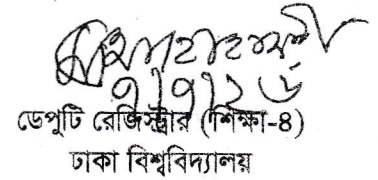 ৭।৭।২৬
ডেপুটি রেজিস্ট্রার (শিক্ষা-৪)
ঢাকা বিশ্ববিদ্যালয়